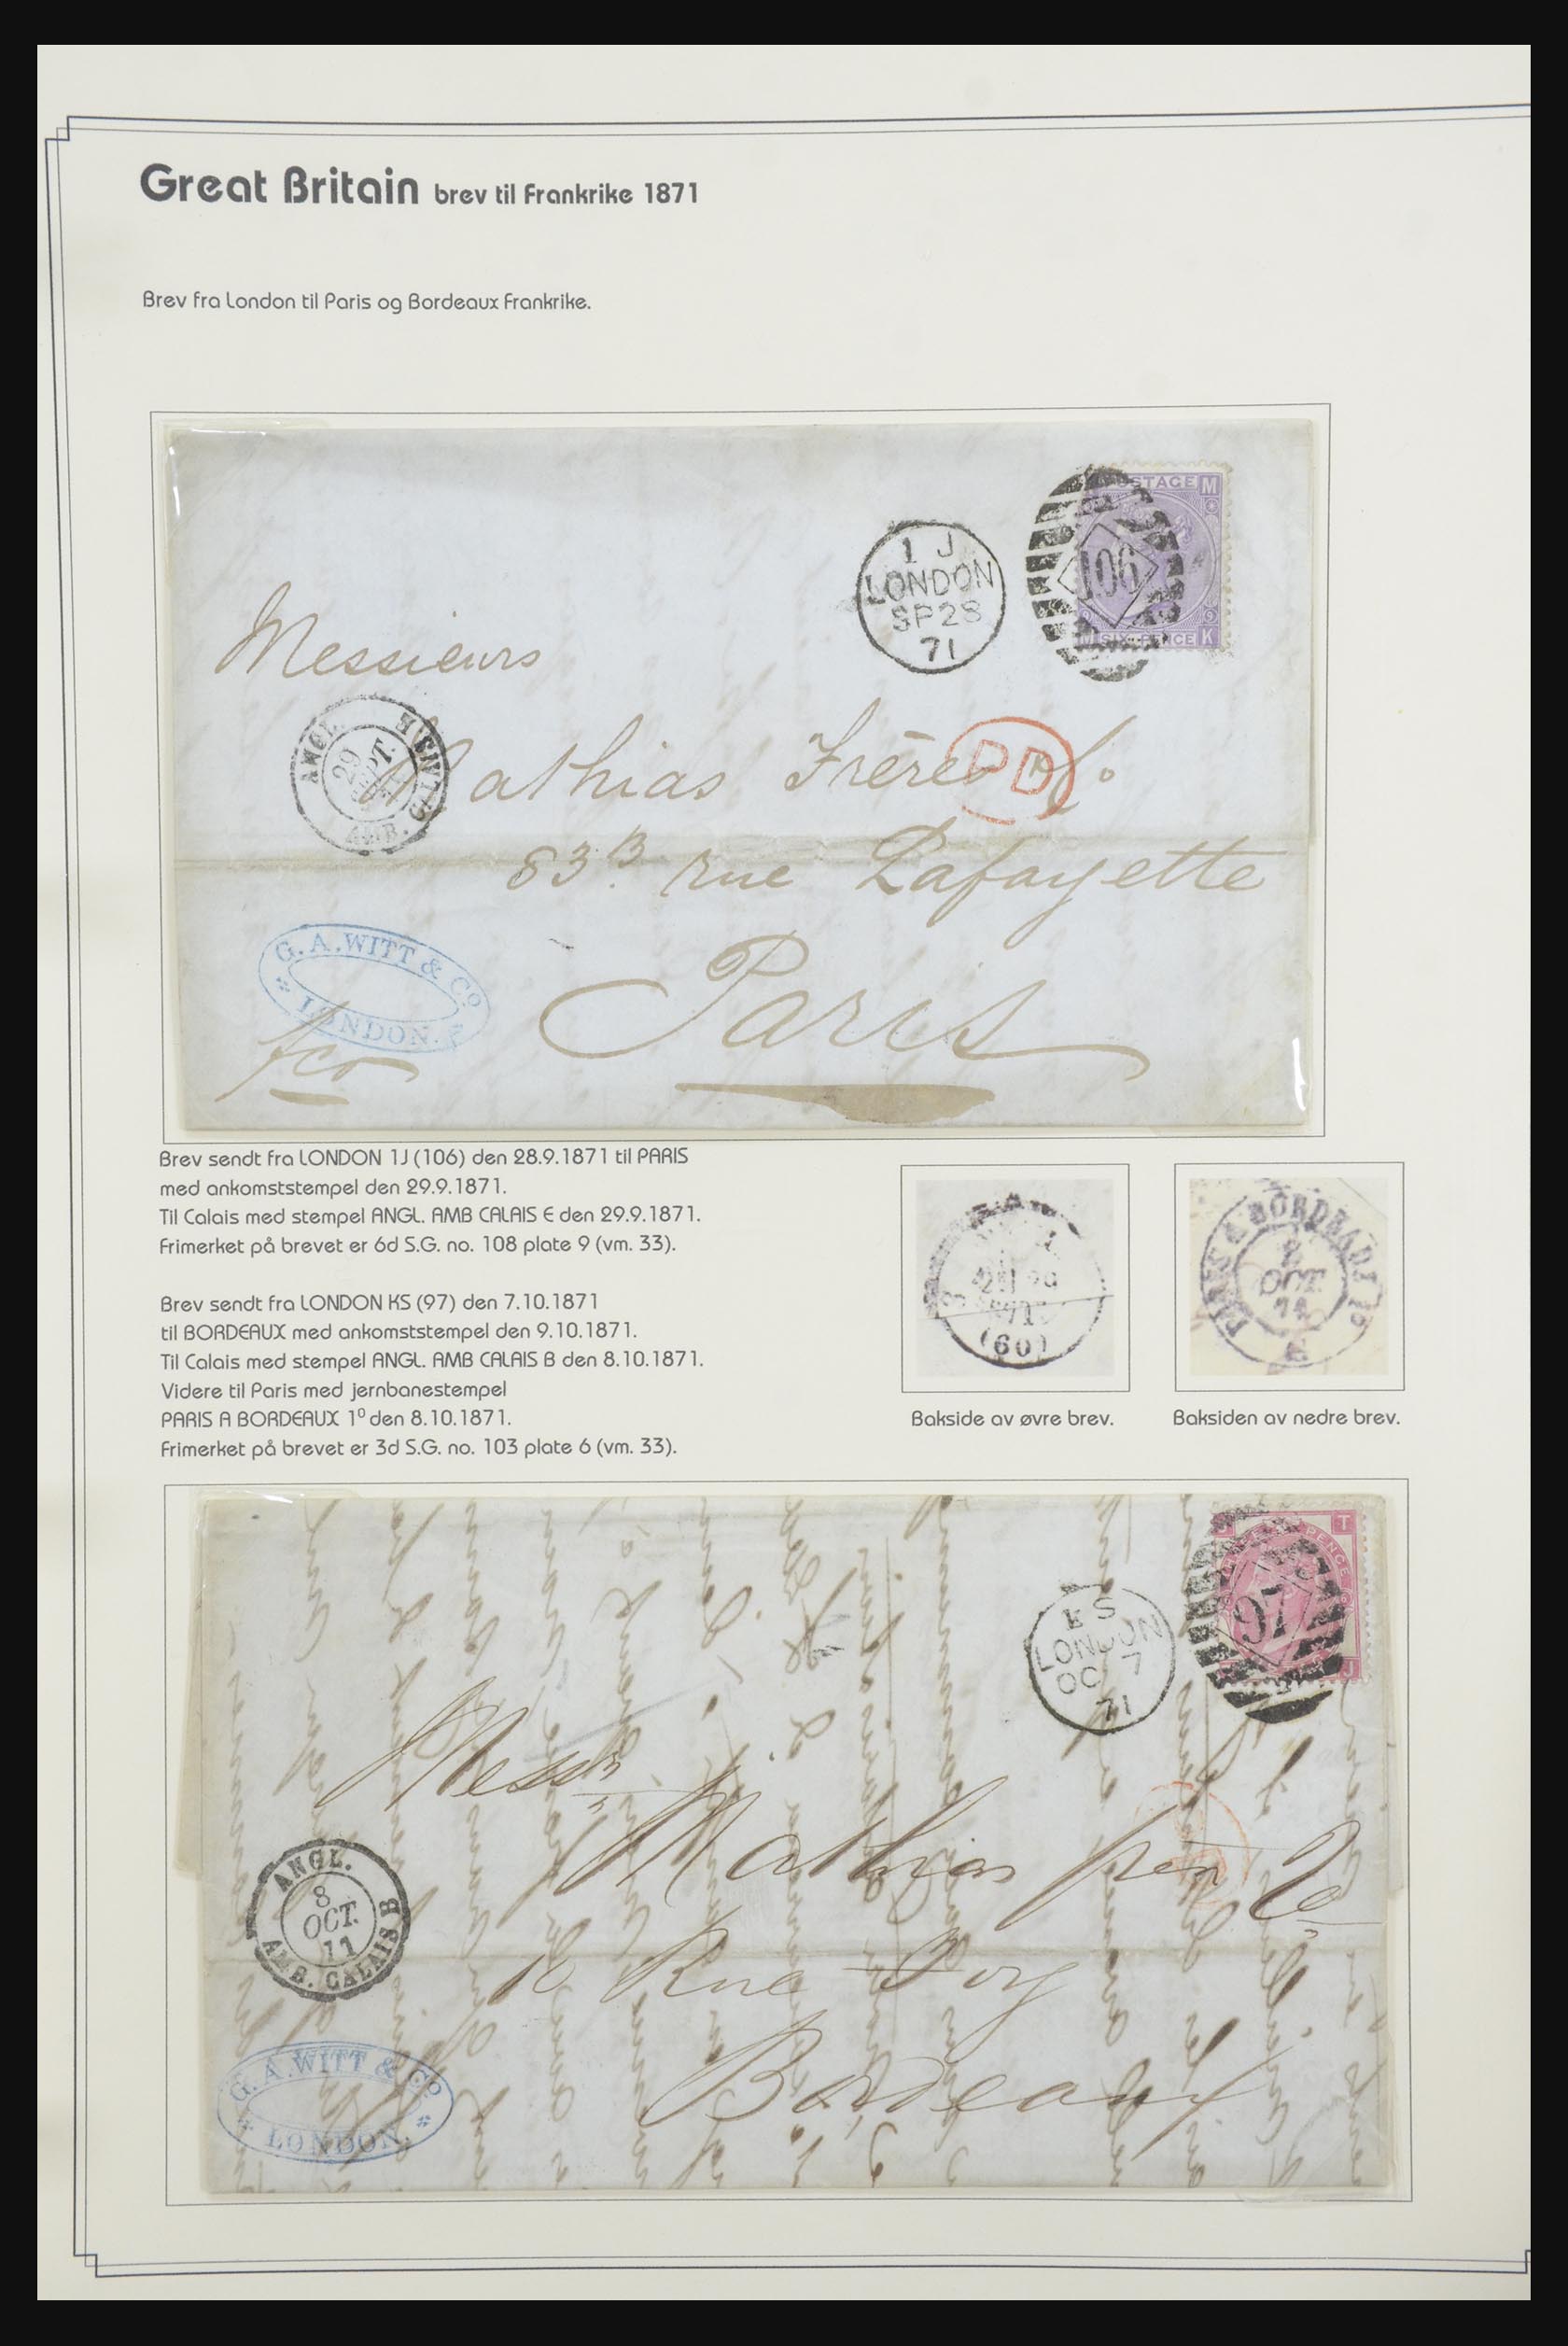 Great Britain brev til Frankrike 1871
Brev fra London til Paris og Bordeaux Frankrike.
POSTAGE M
1 J
LONDON
SP 28
71
106
M SIX PENCE K
Messieurs
ANGL.
29
SEPT.
AMB. CALAIS E
Mathias Frères
PD
83 B rue Lafayette
G. A. WITT & Co
LONDON.
fco
Paris
Brev sendt fra LONDON 1J (106) den 28.9.1871 til PARIS
med ankomststempel den 29.9.1871.
Til Calais med stempel ANGL. AMB CALAIS E den 29.9.1871.
Frimerket på brevet er 6d S.G. no. 108 plate 9 (vm. 33).
Brev sendt fra LONDON KS (97) den 7.10.1871
til BORDEAUX med ankomststempel den 9.10.1871.
Til Calais med stempel ANGL. AMB CALAIS B den 8.10.1871.
Videre til Paris med jernbanestempel
PARIS A BORDEAUX 1º den 8.10.1871.
Frimerket på brevet er 3d S.G. no. 103 plate 6 (vm. 33).
(60)
Bakside av øvre brev.
BORDEAUX 1º
8
OCT.
71
Baksiden av nedre brev.
T
PENCE
97
J
KS
LONDON
OC 7
71
Messrs
Mathias
ANGL.
8
OCT.
71
AMB. CALAIS B
Rue Foy
Bordeaux
G. A. WITT & Co
LONDON.